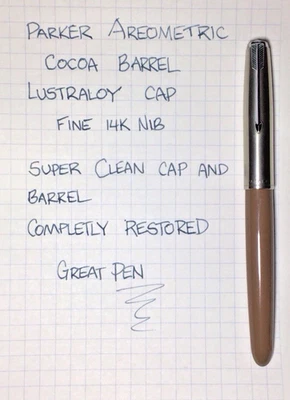 PARKER AREOMETRIC
COCOA BARREL
LUSTRALOY CAP
FINE 14K NIB
SUPER CLEAN CAP AND
BARREL
COMPLETLY RESTORED
GREAT PEN